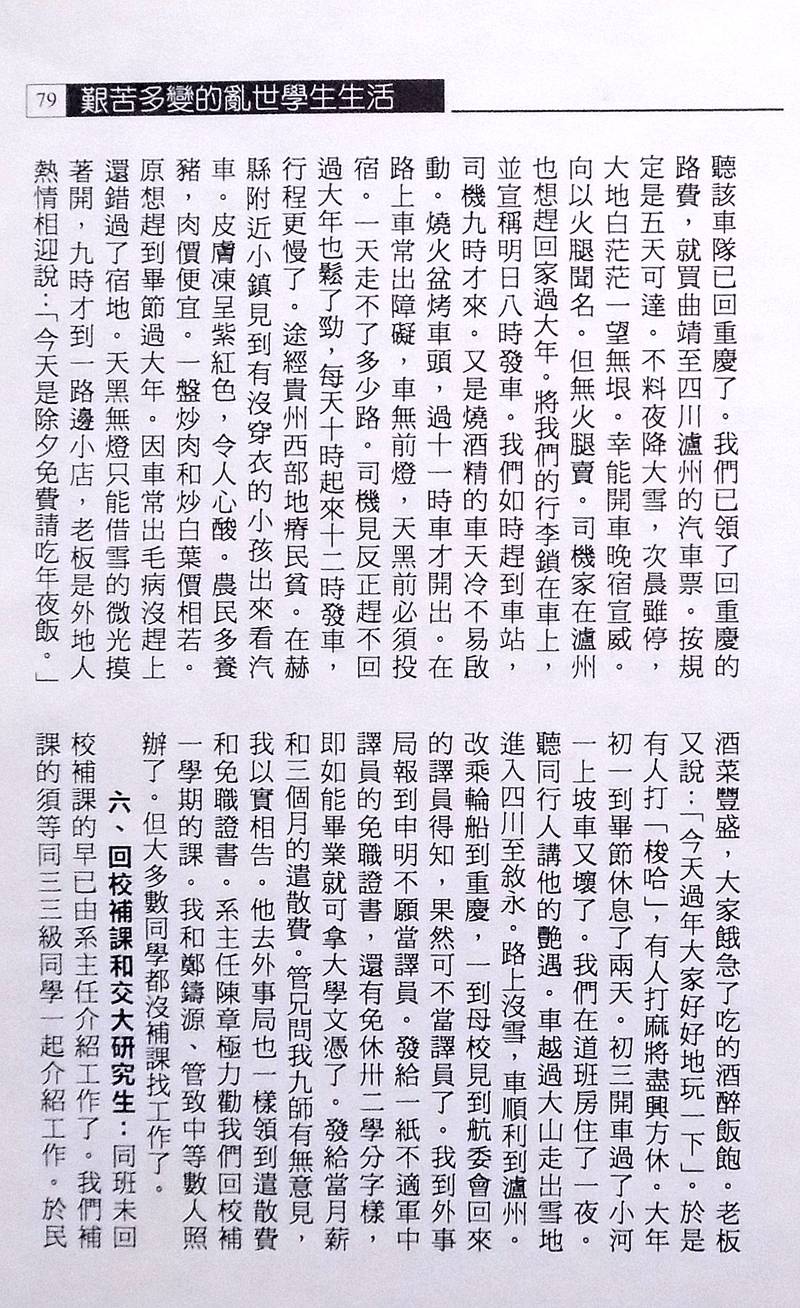 79 艱苦多變的亂世學生生活
聽該車隊已回重慶了。我們已領了回重慶的
路費，就買曲靖至四川瀘州的汽車票。按規
定是五天可達。不料夜降大雪，次晨雖停，
大地白茫茫一望無垠。幸能開車晚宿宣威。
向以火腿聞名。但無火腿賣。司機家在瀘州
也想趕回家過大年。將我們的行李鎖在車上，
並宣稱明日八時發車。我們如時趕到車站，
司機九時才來。又是燒酒精的車天冷不易啟
動。燒火盆烤車頭，過十一時車才開出。在
路上車常出障礙，車無前燈，天黑前必須投
宿。一天走不了多少路。司機見反正趕不回
過大年也鬆了勁，每天十時起來十二時發車，
行程更慢了。途經貴州西部地瘠民貧。在赫
縣附近小鎮見到有沒穿衣的小孩出來看汽
車。皮膚凍呈紫紅色，令人心酸。農民多養
豬，肉價便宜。一盤炒肉和炒白葉價相若。
原想趕到畢節過大年。因車常出毛病沒趕上
還錯過了宿地。天黑無燈只能借雪的微光摸
著開，九時才到一路邊小店，老板是外地人
熱情相迎說：「今天是除夕免費請吃年夜飯。」
酒菜豐盛，大家餓急了吃的酒醉飯飽。老板
又說：「今天過年大家好好地玩一下」。於是
有人打「梭哈」，有人打麻將盡興方休。大年
初一到畢節休息了兩天。初三開車過了小河
一上坡車又壞了。我們在道班房住了一夜。
聽同行人講他的艷遇。車越過大山走出雪地
進入四川至敘永。路上沒雪，車順利到瀘州。
改乘輪船到重慶，一到母校見到航委會回來
的譯員得知，果然可不當譯員了。我到外事
局報到申明不願當譯員。發給一紙不適軍中
譯員的免職證書，還有免休卅二學分字樣，
即如能畢業就可拿大學文憑了。發給當月薪
和三個月的遣散費。管兄問我九師有無意見，
我以實相告。他去外事局也一樣領到遣散費
和免職證書。系主任陳章極力勸我們回校補
一學期的課。我和鄭鑄源、管致中等數人照
辦了。但大多數同學都沒補課找工作了。
六、回校補課和交大研究生：同班未回
校補課的早已由系主任介紹工作了。我們補
課的須等同三三級同學一起介紹工作。於民